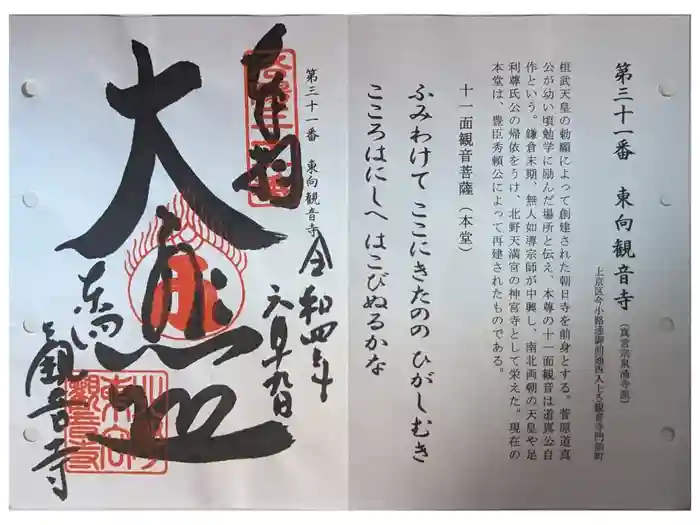 第三十一番　東向観音寺（真言宗泉涌寺派）
上京区今小路通御前通西入上る観音寺門前町
桓武天皇の勅願によって創建された朝日寺を前身とする。菅原道真
公が幼い頃勉学に励んだ場所と伝え、本尊の十一面観音は道真公自
作という。鎌倉末期、無人如導宗師が中興し、南北両朝の天皇や足
利尊氏公の帰依をうけ、北野天満宮の神宮寺として栄えた。現在の
本堂は、豊臣秀頼公によって再建されたものである。
十一面観音菩薩（本堂）
ふみわけて ここにきたのの ひがしむき
こころはにしへ はこびぬるかな
第三十一番　東向観音寺
令和四年
六月十九日
奉拝
大悲殿
東向
観音寺